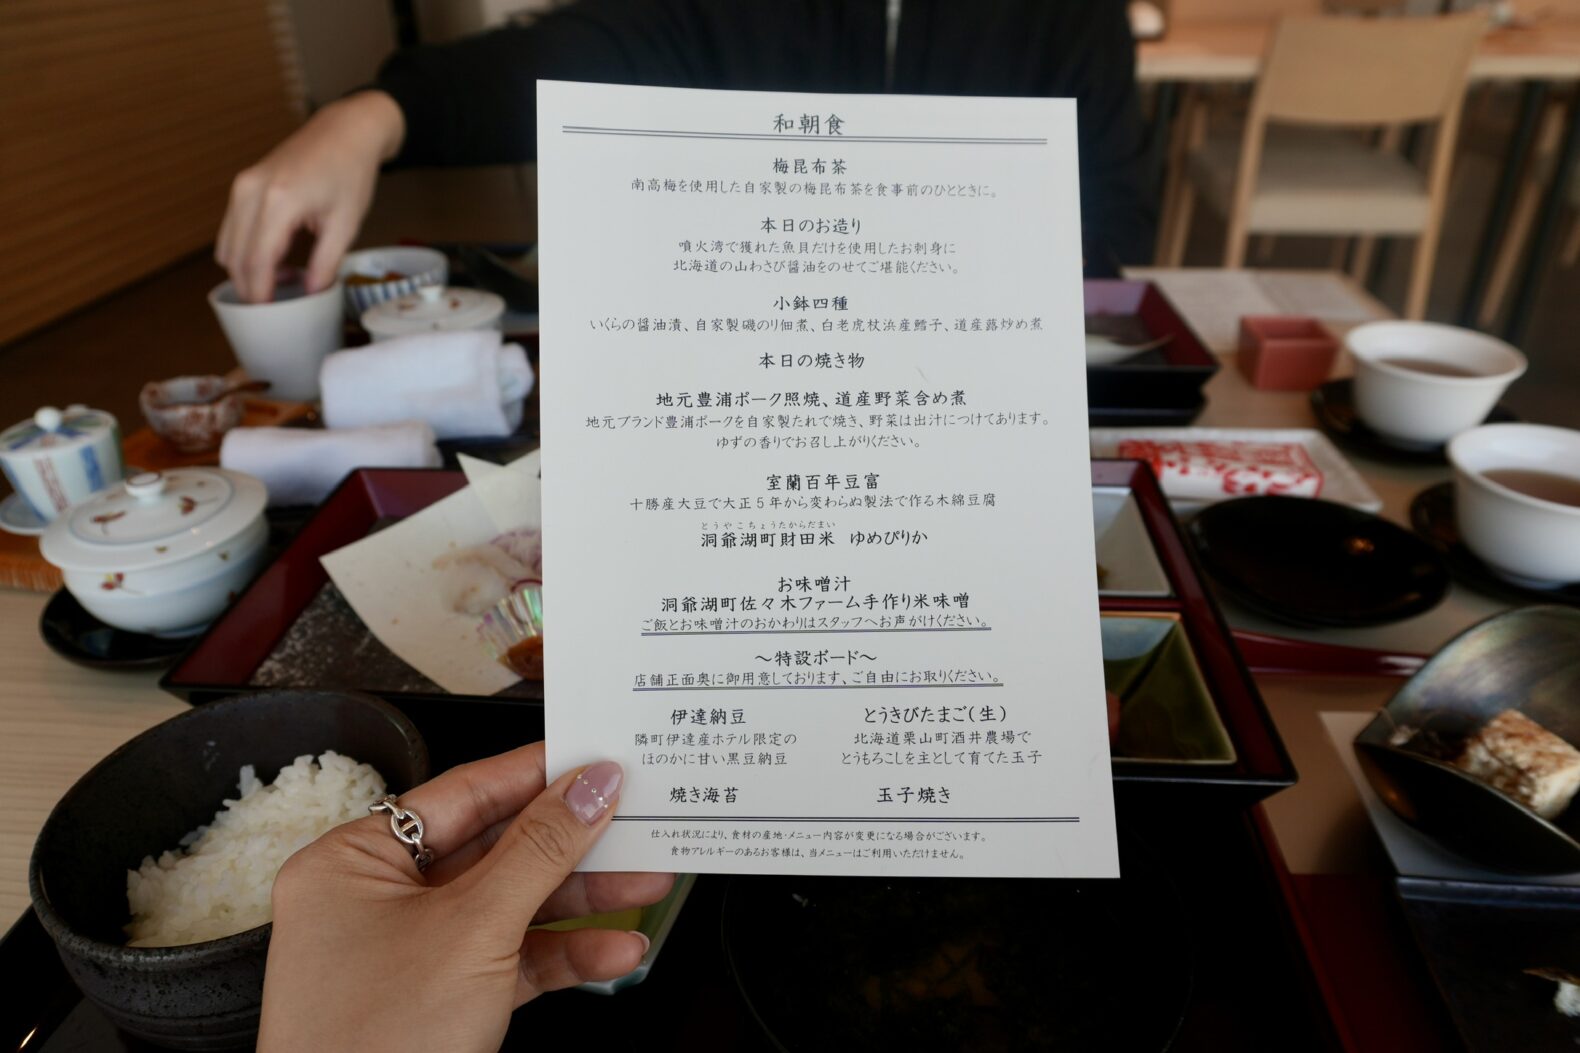 和朝食
梅昆布茶
南高梅を使用した自家製の梅昆布茶を食事前のひとときに。
本日のお造り
噴火湾で獲れた魚貝だけを使用したお刺身に
北海道の山わさび醤油をのせてご堪能ください。
小鉢四種
いくらの醤油漬、自家製磯のり佃煮、白老虎杖浜産鱈子、道産蕗炒め煮
本日の焼き物
地元豊浦ポーク照焼、道産野菜含め煮
地元ブランド豊浦ポークを自家製たれで焼き、野菜は出汁につけてあります。
ゆずの香りでお召し上がりください。
室蘭百年豆富
十勝産大豆で大正5年から変わらぬ製法で作る木綿豆腐
とうやこちょうたからだまい
洞爺湖町財田米 ゆめぴりか
お味噌汁
洞爺湖町佐々木ファーム手作り米味噌
ご飯とお味噌汁のおかわりはスタッフへお声がけください。
～特設ボード～
店舗正面奥に御用意しております、ご自由にお取りください。
伊達納豆
隣町伊達産ホテル限定の
ほのかに甘い黒豆納豆
とうきびたまご(生)
北海道栗山町酒井農場で
とうもろこしを主として育てた玉子
焼き海苔
玉子焼き
仕入れ状況により、食材の産地・メニュー内容が変更になる場合がございます。
食物アレルギーのあるお客様は、当メニューはご利用いただけません。